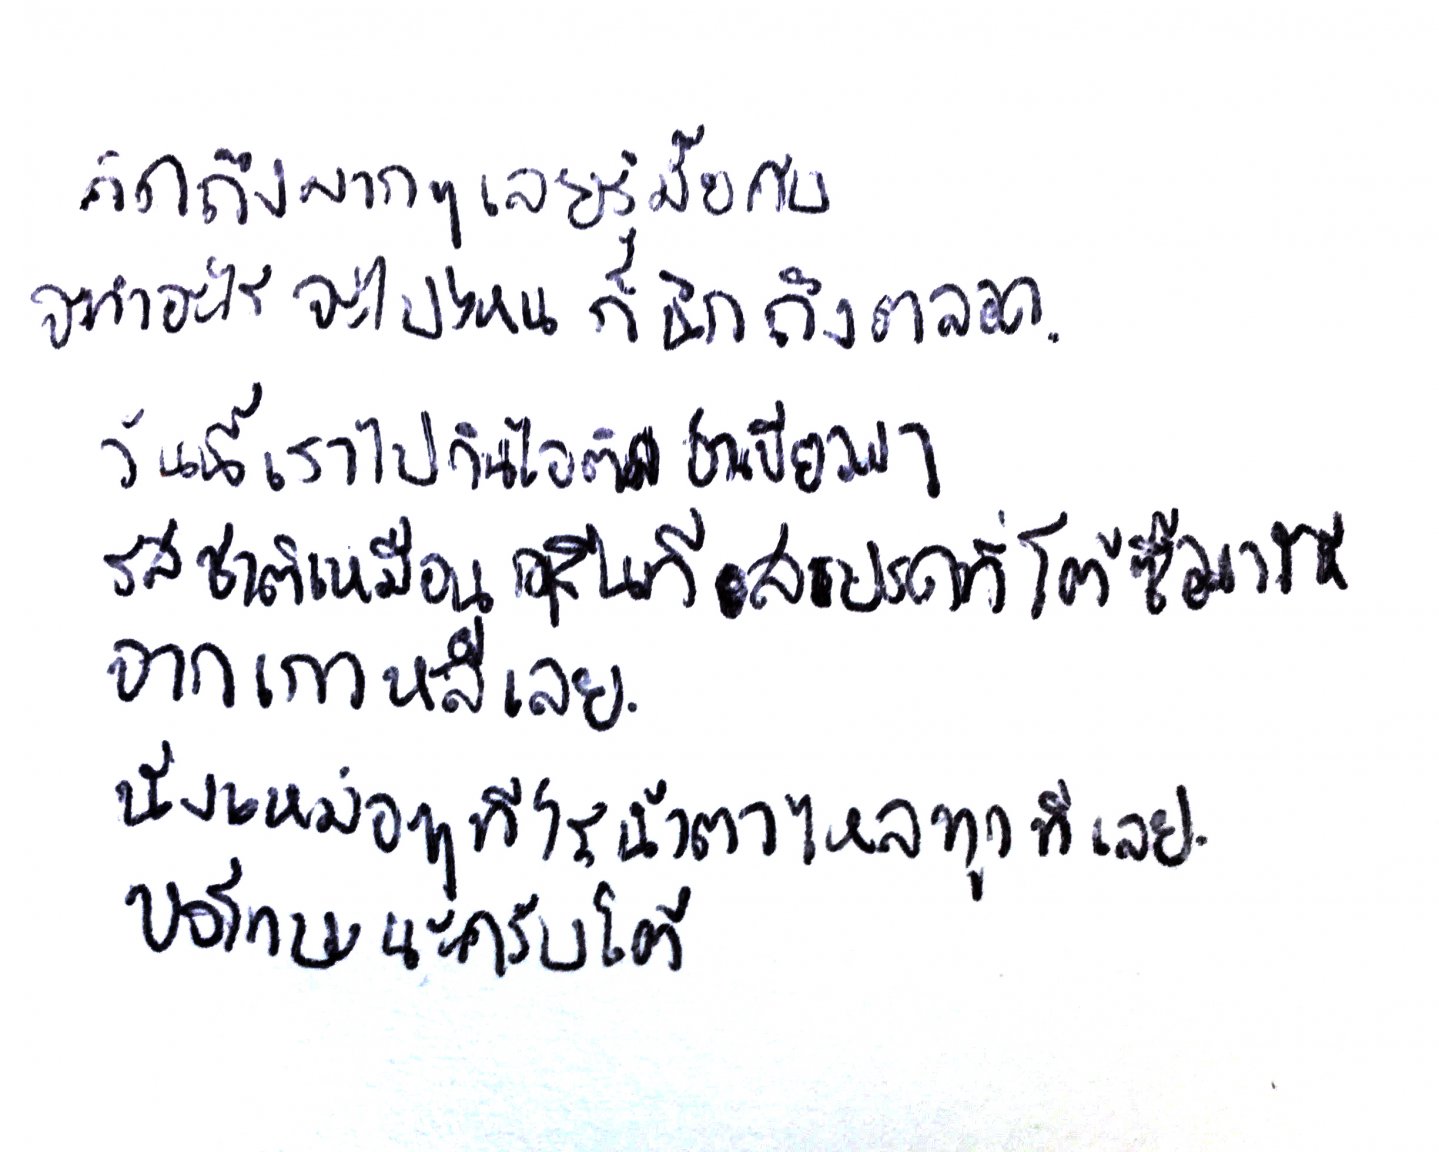 คิดถึงมากๆ เลยรู้มั้ยคับ
จะทำอะไร จะไปไหน ก็คิดถึงตลอด.
วันนี้เราไปกินไอติม ชาเขียวมา
รสชาติเหมือน กรีนที สเปรดที่โตซื้อมาให้
จากเกาหลีเลย.
นั่งเหม่อๆ ทีไรน้ำตาไหลทุกทีเลย.
นะครับโต